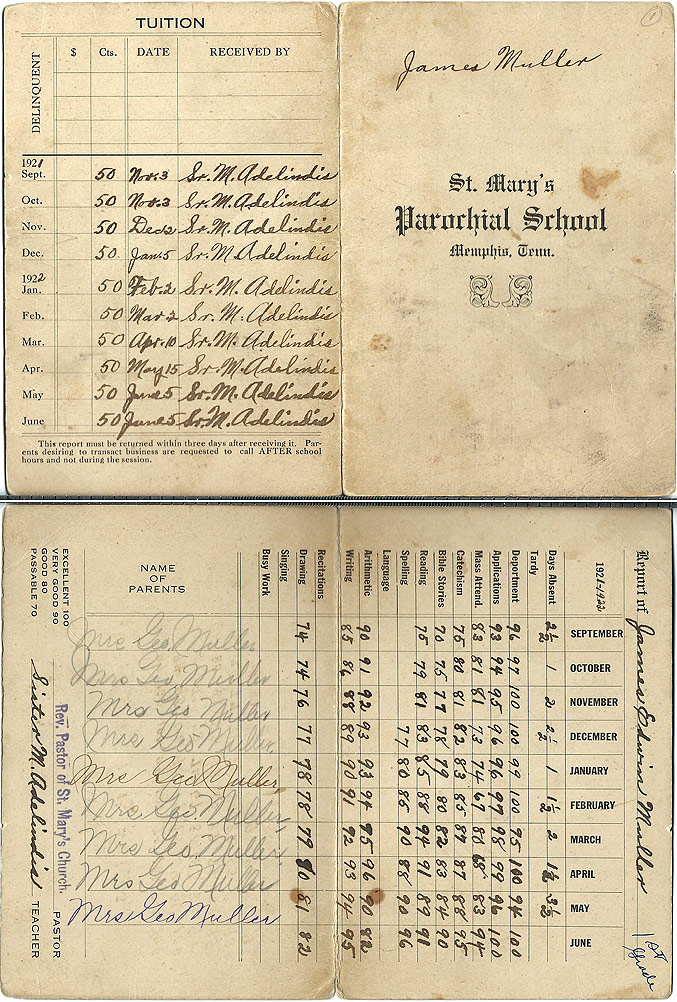 TUITION
DELINQUENT
$ Cts. DATE RECEIVED BY
1921
Sept. 50 Nov. 3 Sr. M. Adelindis
Oct. 50 Nov. 3 Sr. M. Adelindis
Nov. 50 Dec 2 Sr. M. Adelindis
Dec. 50 Jan. 5 Sr. M. Adelindis
1922
Jan. 50 Feb. 2 Sr. M. Adelindis
Feb. 50 Mar 2 Sr. M. Adelindis
Mar. 50 Apr. 10 Sr. M. Adelindis
Apr. 50 May 15 Sr. M. Adelindis
May 50 June 5 Sr. M. Adelindis
June 50 June 5 Sr. M. Adelindis
This report must be returned within three days after receiving it. Par-
ents desiring to transact business are requested to call AFTER school
hours and not during the session.
1
James Muller
St. Mary's
Parochial School
Memphis, Tenn.
Report of James Edwin Muller
1st Grade
1921-1922 SEPTEMBER OCTOBER NOVEMBER DECEMBER JANUARY FEBRUARY MARCH APRIL MAY JUNE
Days Absent 2½ 1 2 2½ 1 1½ 2 1½ 3½
Tardy
Deportment 96 97 100 100 99 100 95 100 94 100
Applications 93 94 95 96 96 97 98 99 96 100
Mass Attend. 83 81 81 73 74 67 80 68 83 94
Catechism 75 80 77 82 83 85 87 87 88 95
Bible Stories 70 75 77 78 79 80 82 83 84 90
Reading 75 79 81 83 85 88 94 91 89 91
Spelling 77 80 86 90 88 90 96
Language
Arithmetic 90 91 92 93 93 94 95 96 90 82
Writing 85 86 88 89 90 91 92 93 94 95
Recitations
Drawing 74 74 76 77 78 78 79 80 81 82
Singing
Busy Work
NAME
OF
PARENTS
Mrs Geo Muller
Mrs Geo Muller
Mrs Geo Muller
Mrs Geo Muller
Mrs Geo Muller
Mrs Geo Muller
Mrs Geo Muller
Mrs Geo Muller
Mrs Geo Muller
EXCELLENT 100
VERY GOOD 90
GOOD 80
PASSABLE 70
Rev. Pastor of St. Mary's Church. PASTOR
Sister M. Adelindis TEACHER